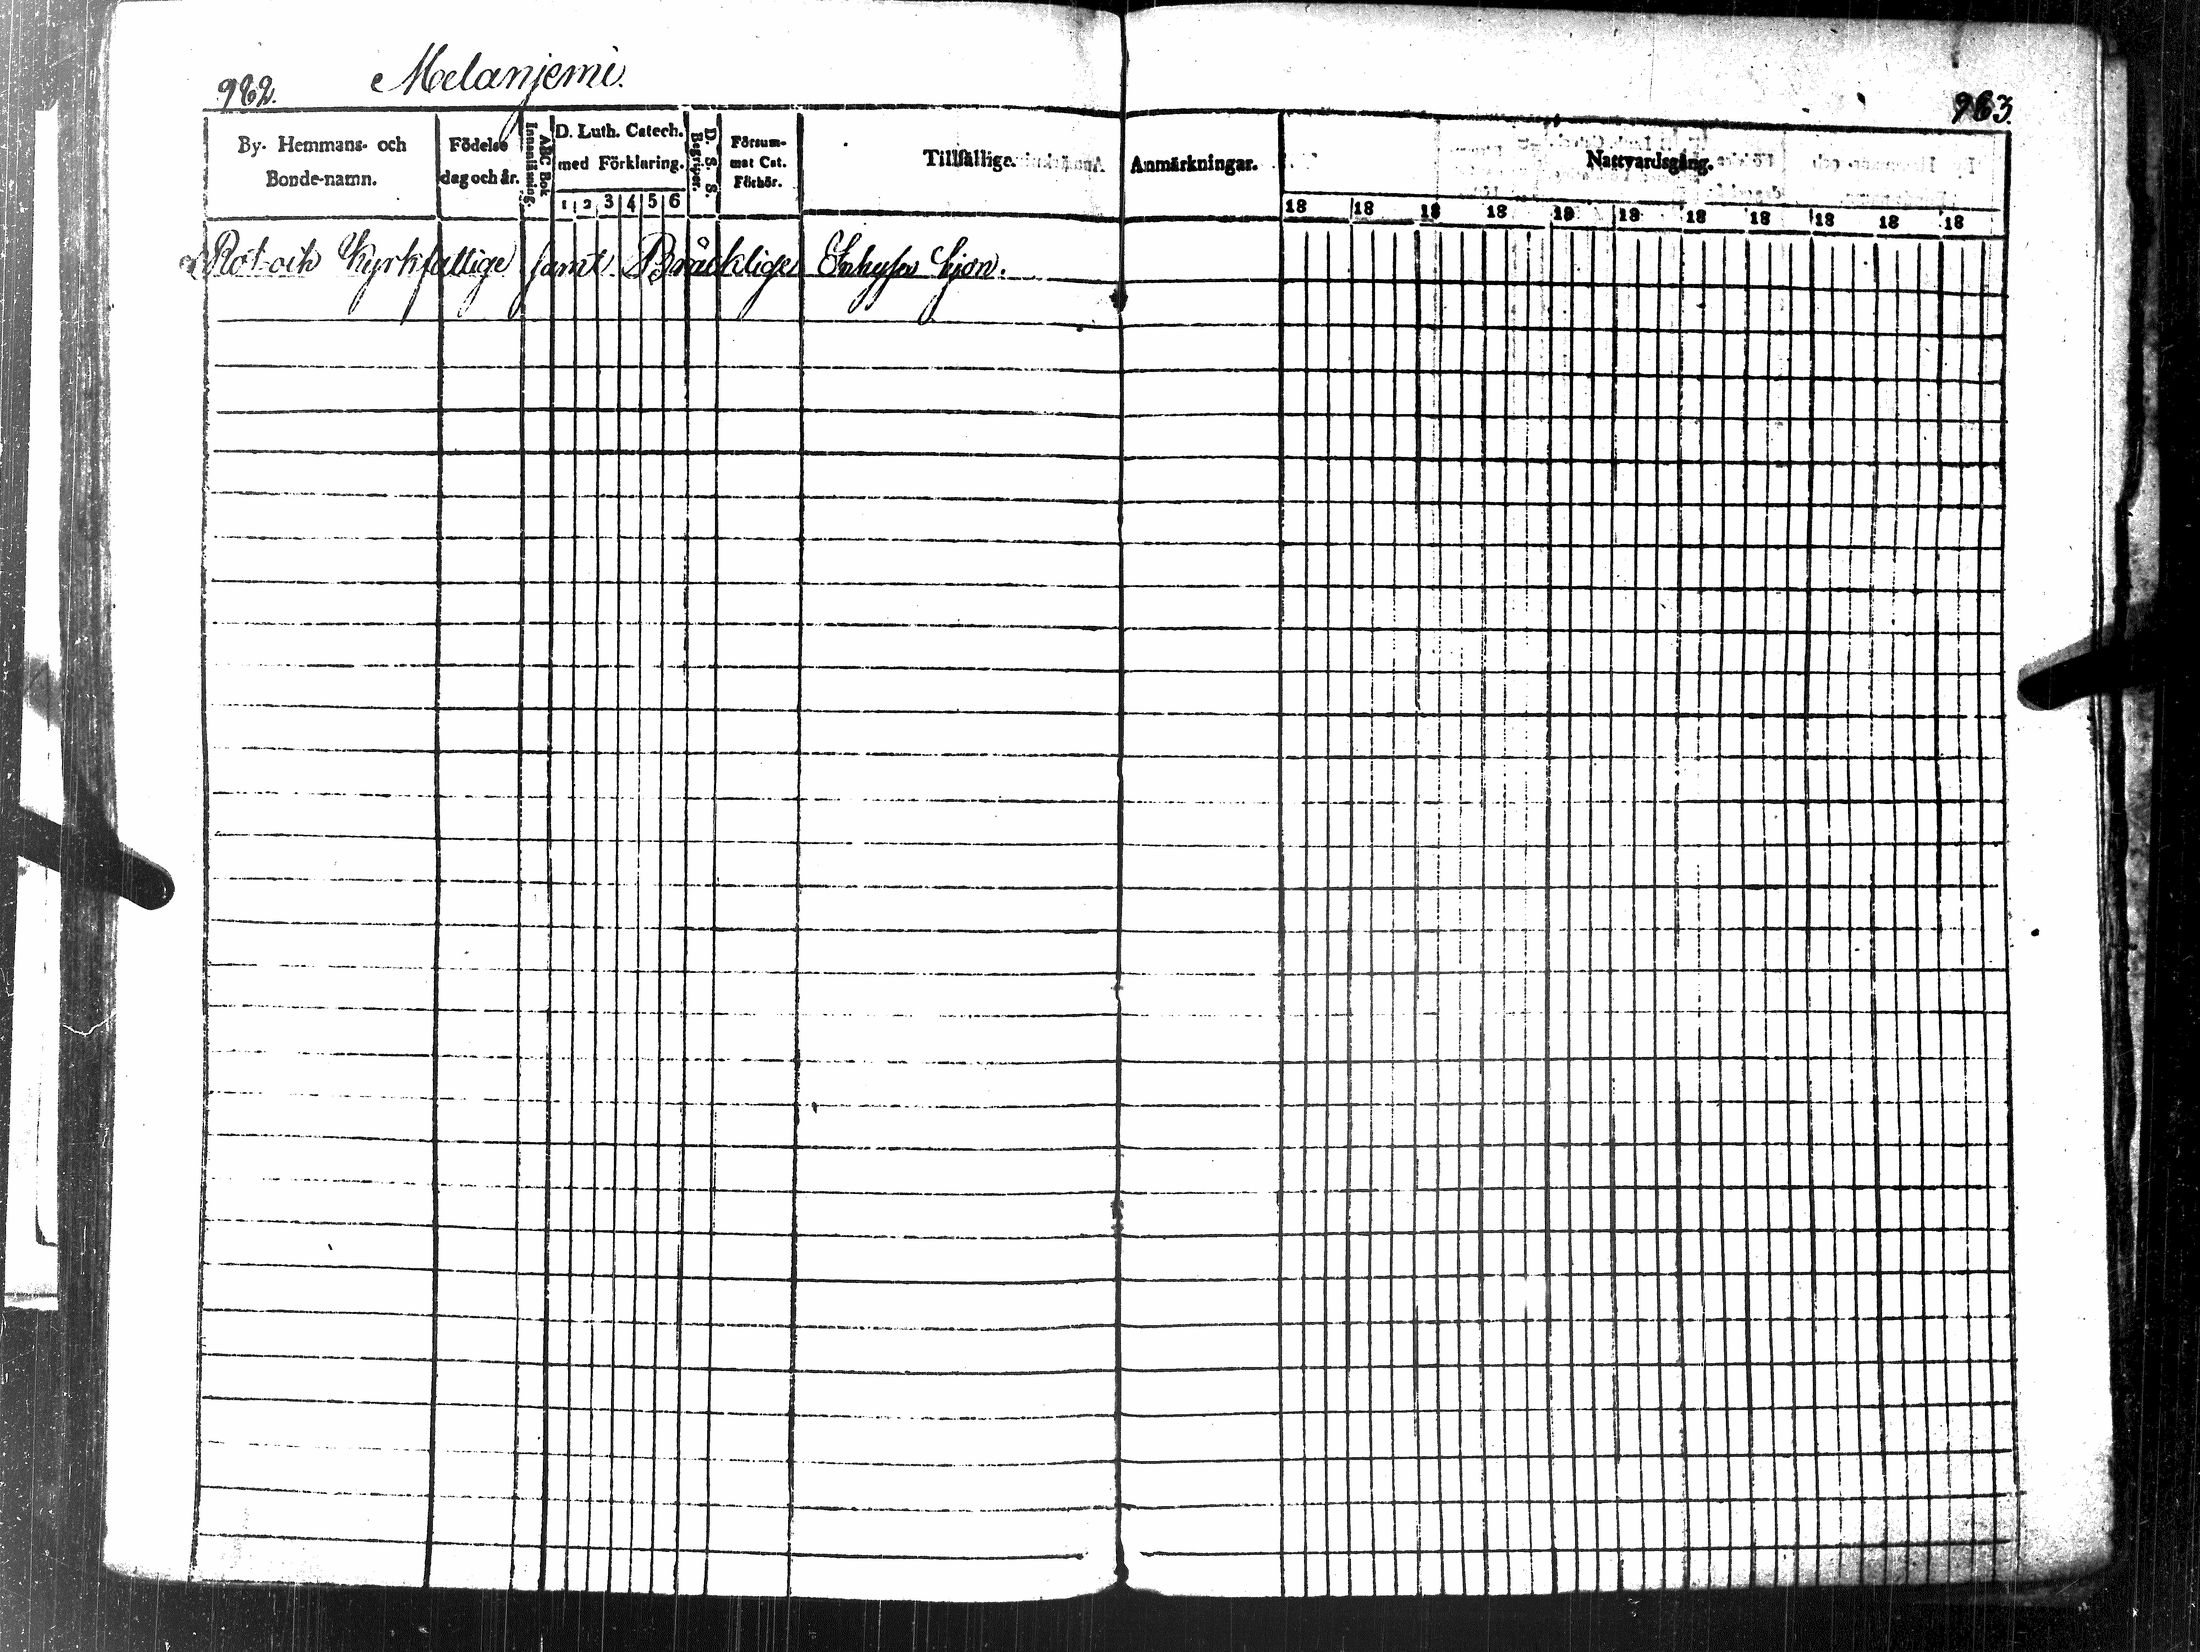 982. Melanjemi. 983.
By- Hemmans- och Bonde-namn.
Födelse dag och år.
ABC Bok
Innanläsning.
D. Luth. Catech. med Förklaring.
1 2 3 4 5 6
D. S. S.
Begriper.
Försummat Cat. Förhör.
Tillfällige
Anmärkningar.
Nattvardsgång.
18 18 18 18 18 18 18 18 18 18 18
Rot- och Kyrkfattige samt Bräcklige Inhyses hjon.